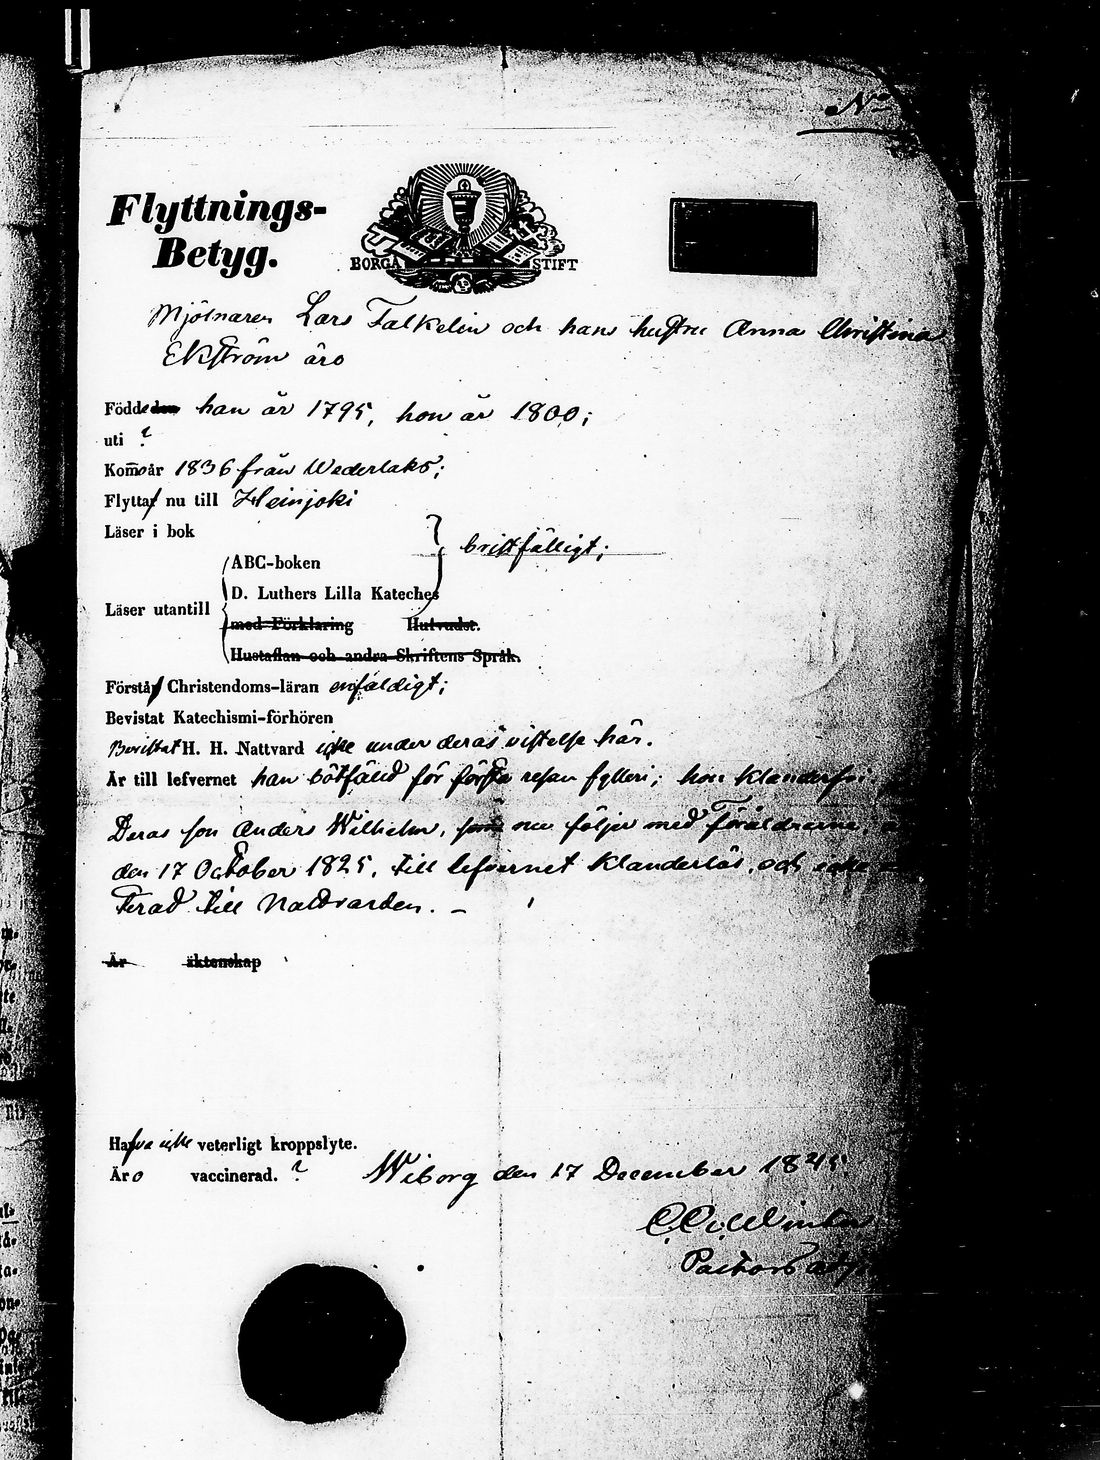 No
Flyttnings-
Betyg.
BORGÅ STIFT
Mjölnaren Lars Falkelin och hans hustru Anna Christina
Ekström äro
Födde den han år 1795, hon år 1800;
uti ?
Kommo år 1836 från Wederlaks;
Flytta nu till Heinjoki
Läser i bok
bristfälligt;
ABC-boken
D. Luthers Lilla Kateches
Läser utantill
med Förklaring Hufvudst.
Hustaflan och andra Skriftens Språk.
Förstå Christendoms-läran enfaldigt;
Bevistat Katechismi-förhören
Bevistat H. H. Nattvard icke under deras vistelse här.
Är till lefvernet han bötfäld för första resan fylleri; hon klanderfri
Deras son Anders Wilhelm, som nu följer med Föräldrarne,
den 17 October 1825, till lefvernet klanderlös, och icke
terad till Nattvarden. –
Är äktenskap
Hafva icke veterligt kroppslyte.
Äro vaccinerad. ?
Wiborg den 17 December 1845.
Pastors adj